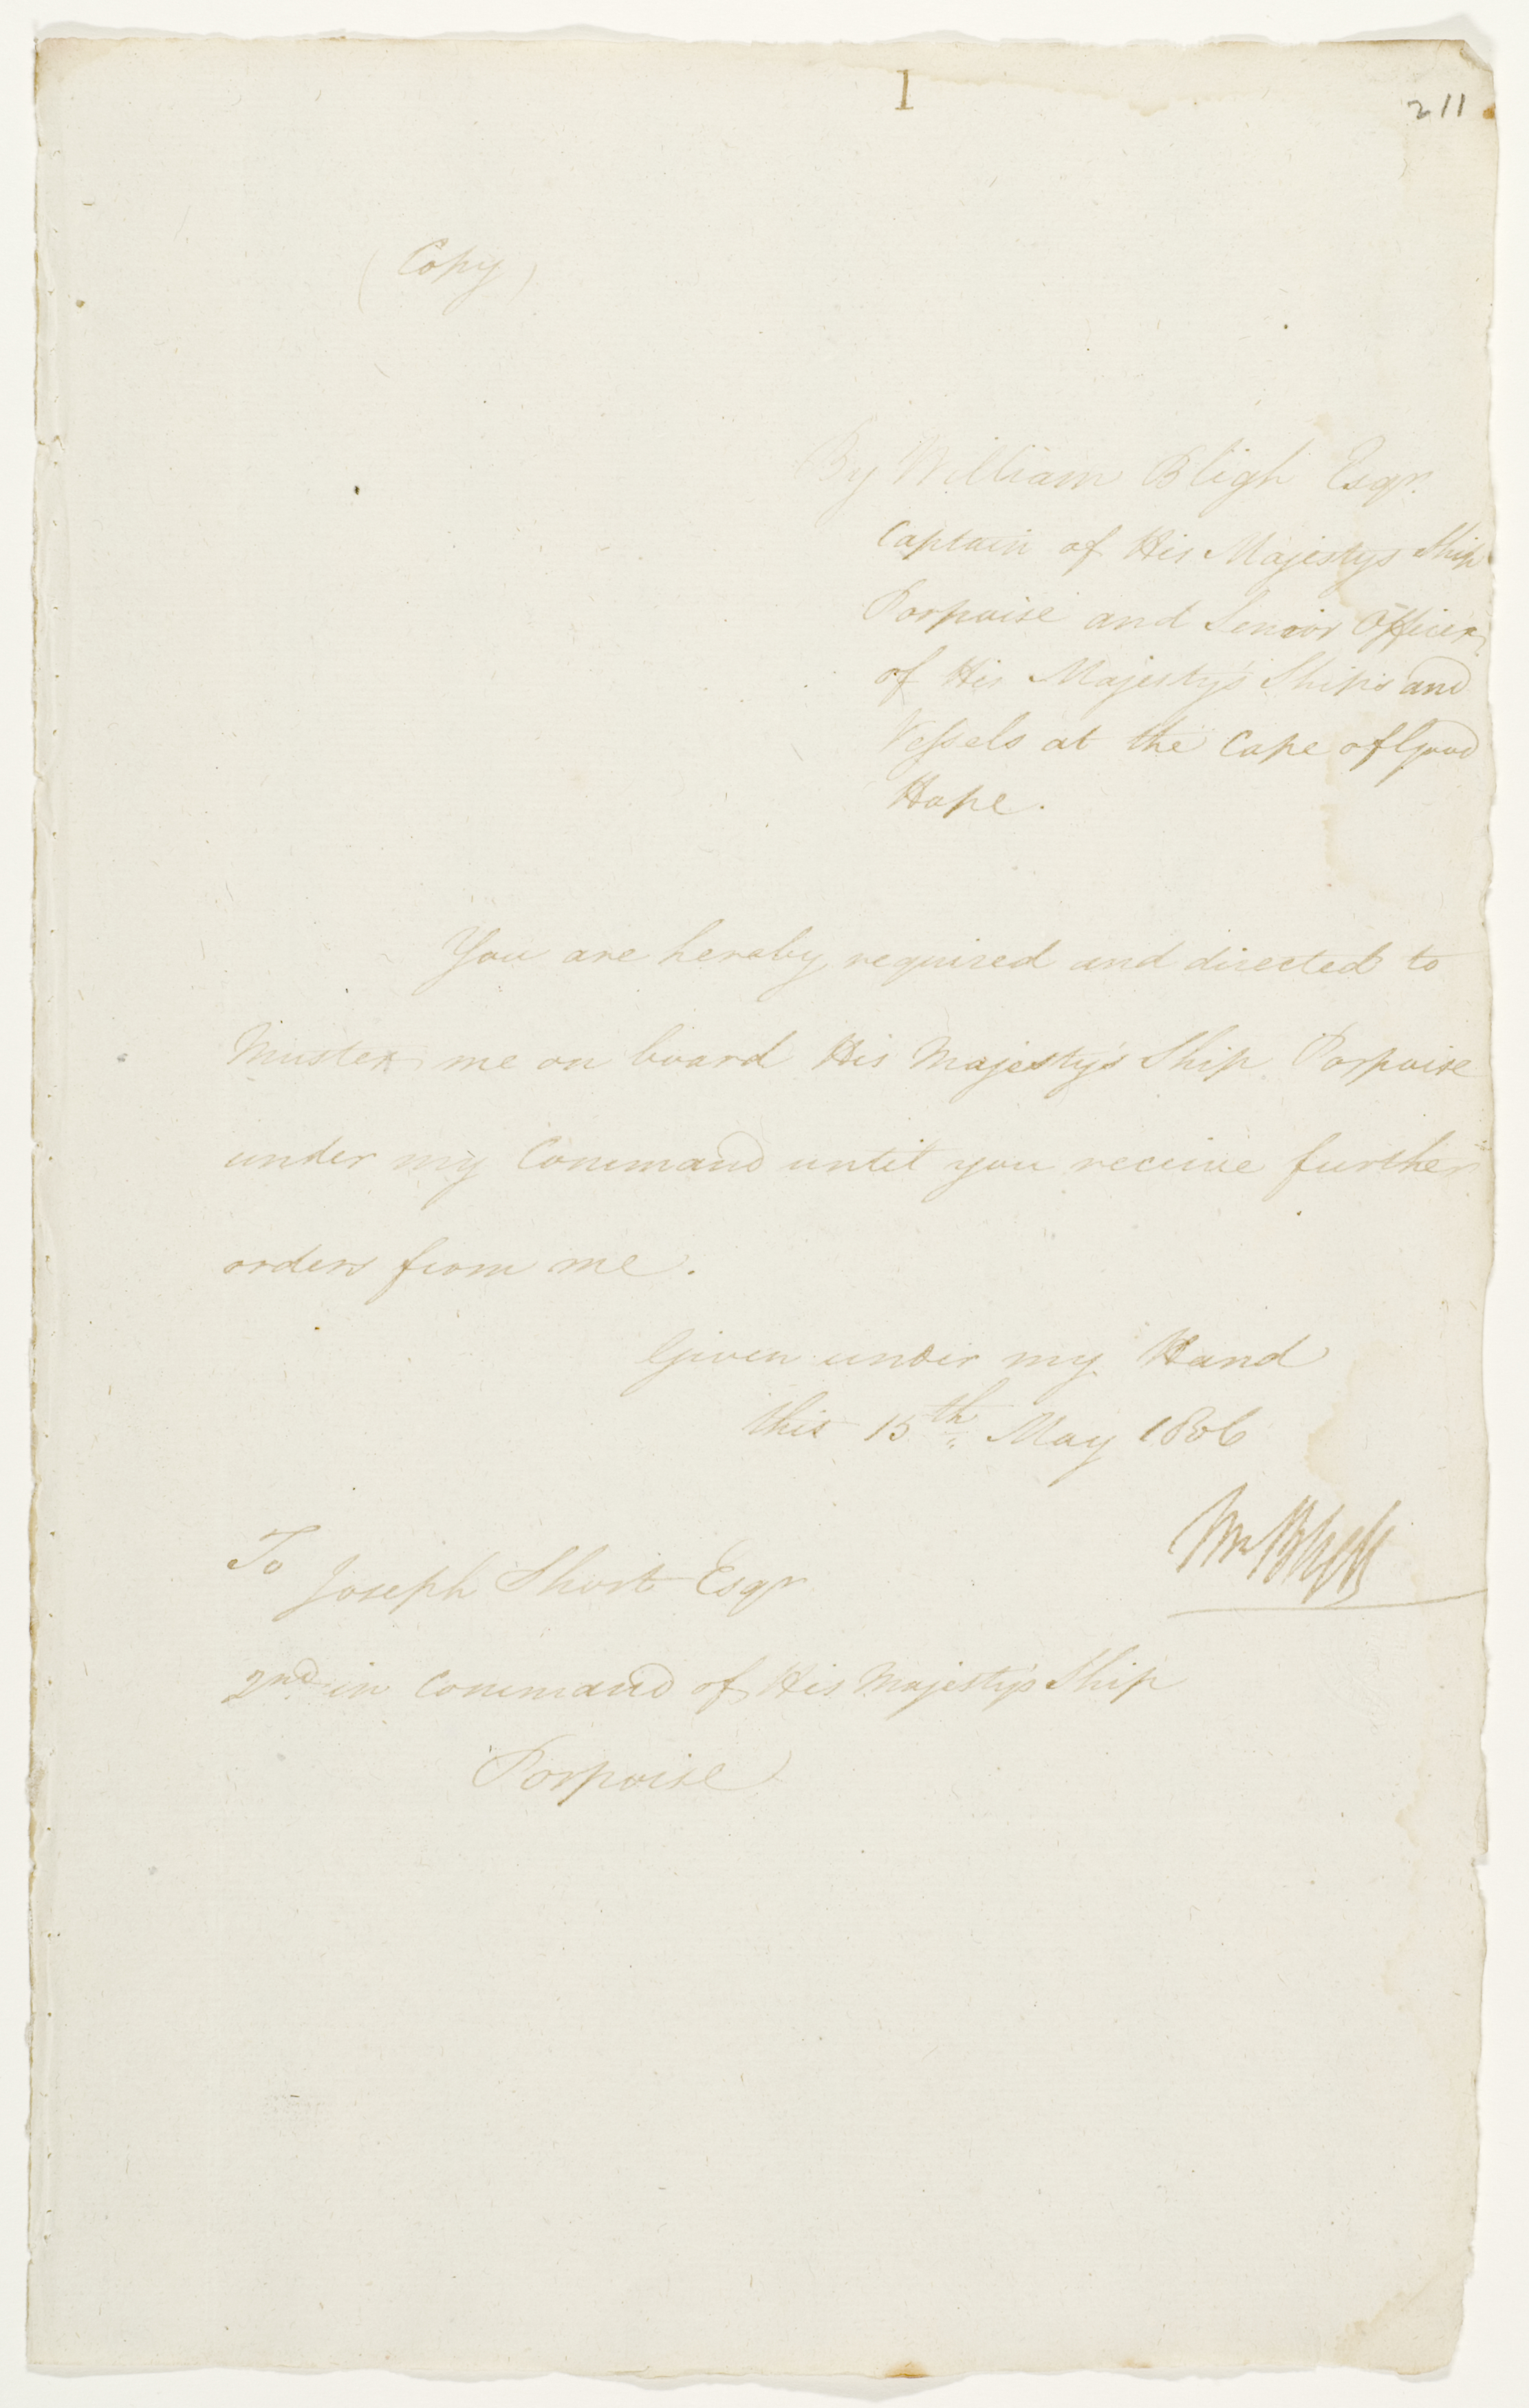 1
211
(Copy)
By William Bligh Esqr.
Captain of His Majestys Ship
Porpoise and Senior Officer
of His Majesty's Ships and
Vessels at the Cape of Good
Hope.
You are hereby required and directed to
Muster me on board His Majesty's Ship Porpoise
under my Command until you receive further
orders from me.
Given under my Hand
this 15th May 1806
Wm Bligh
To
Joseph Short Esqr
2nd in Command of His Majesty's Ship
Porpoise